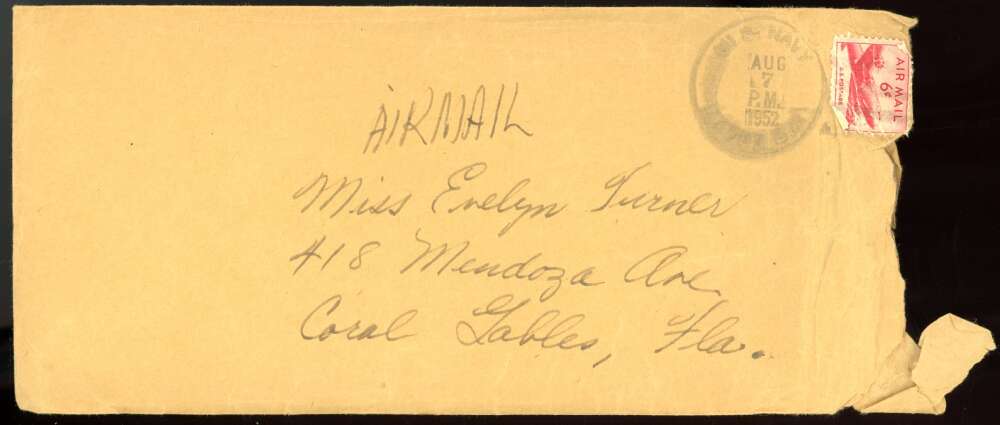 NAVY
AUG
7
P.M.
1952
AIR MAIL
6¢
U.S. POSTAGE
AIRMAIL
Miss Evelyn Turner
418 Mendoza Ave
Coral Gables, Fla.